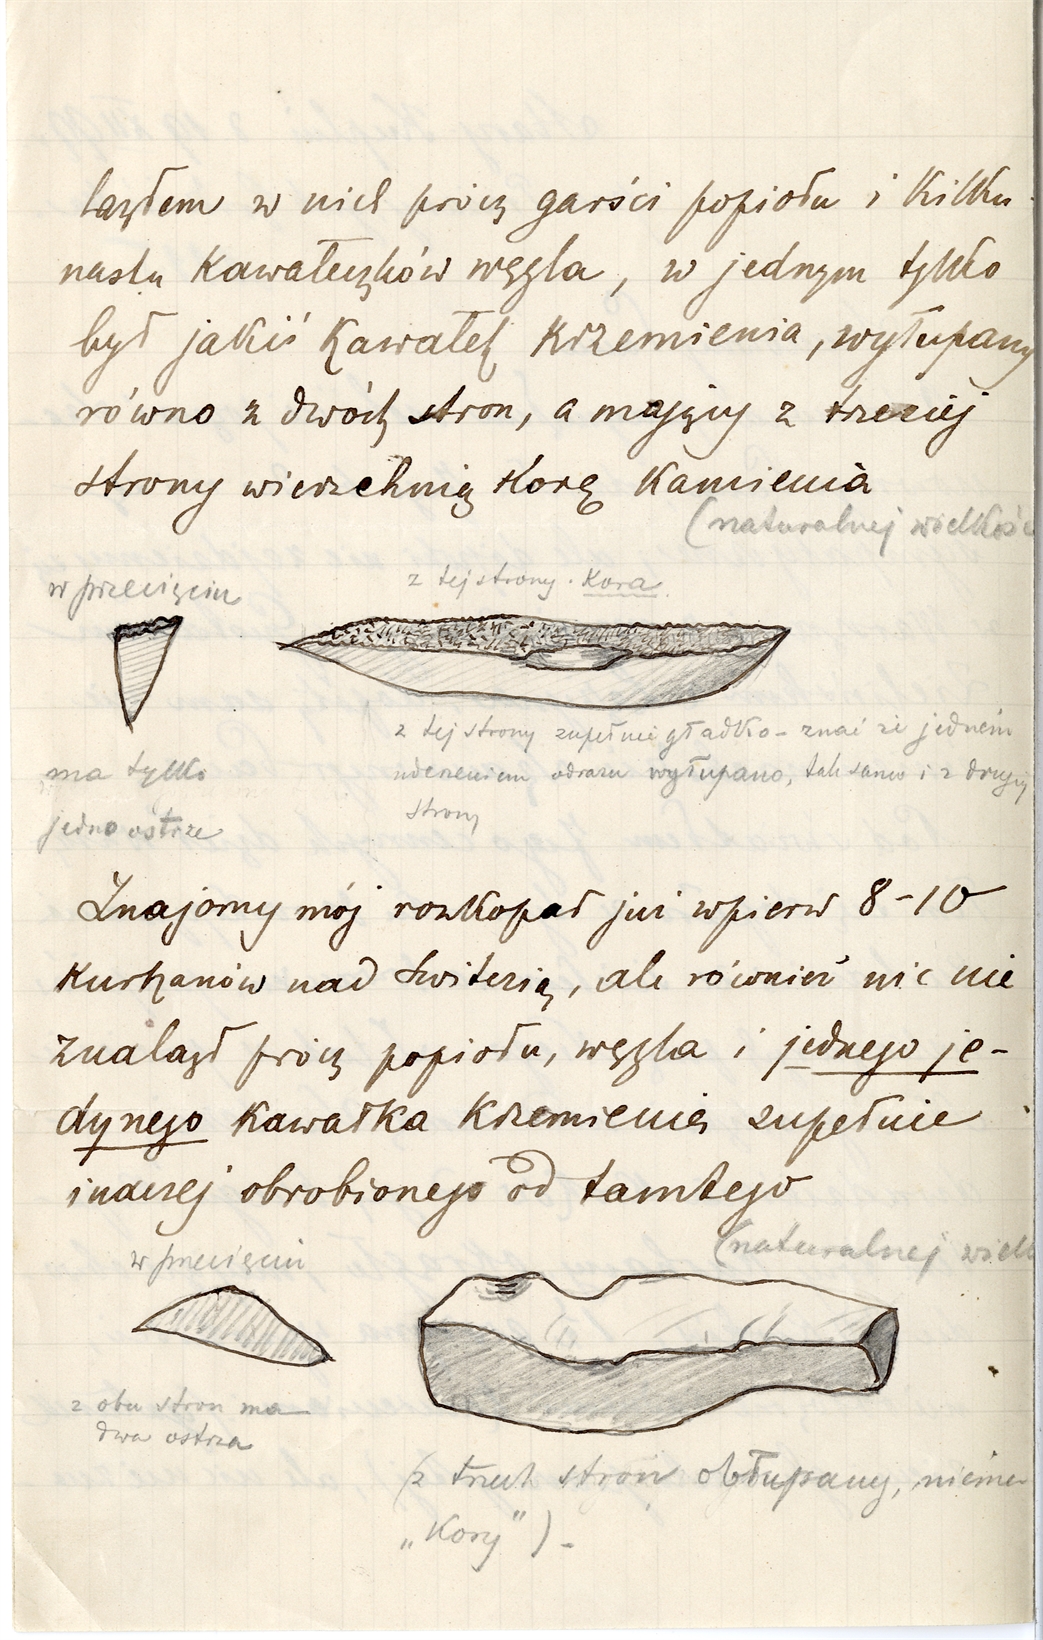 lazłem w nich prócz garści popiołu i kilku
nastu kawałeczków węgla, w jednym tylko
był jakiś kawałek krzemienia, wyłupany
równo z dwóch stron, a mający z trzeciej
strony wierzchnią korę kamienia
(naturalnej wielkości
w przecięciu
z tej strony . kora.
z tej strony zupełnie gładko - znać że jednem
uderzeniem odrazu wyłupano, tak samo i z drugiej
strony
ma tylko
jedno ostrze
Znajomy mój rozkopał już wpierw 8-10
kurhanów nad Świtezią, ale również nic nie
znalazł prócz popiołu, węgla i jednego je-
dynego kawałka krzemienia zupełnie
inaczej obrobionego od tamtego
(naturalnej wielk
w przecięciu
z obu stron ma
dwa ostrza
(z trzech stron obłupany, niema
„kory”) -